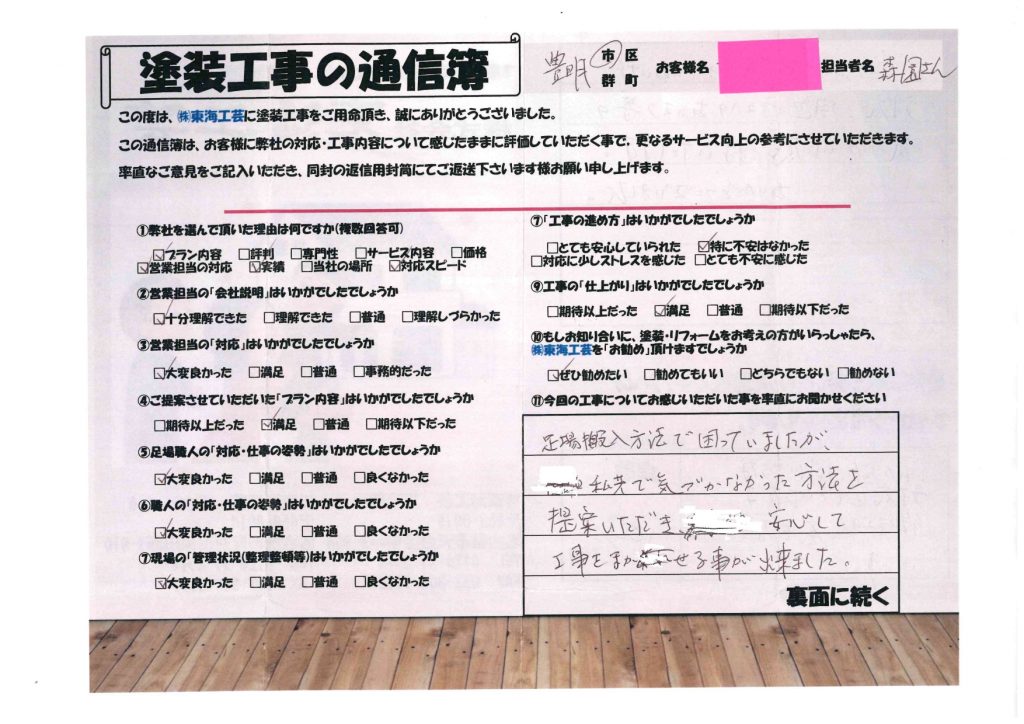 塗装工事の通信簿
豊明 市 区
群 町
お客様名
担当者名 森園さん
この度は、㈱東海工芸に塗装工事をご用命頂き、誠にありがとうございました。
この通信簿は、お客様に弊社の対応・工事内容について感じたままに評価していただく事で、更なるサービス向上の参考にさせていただきます。
率直なご意見をご記入いただき、同封の返信用封筒にてご返送下さいます様お願い申し上げます。
①弊社を選んで頂いた理由は何ですか(複数回答可)
☑プラン内容 □評判 □専門性 □サービス内容 □価格
☑営業担当の対応 ☑実績 □当社の場所 ☑対応スピード
②営業担当の「会社説明」はいかがでしたでしょうか
☑十分理解できた □理解できた □普通 □理解しづらかった
③営業担当の「対応」はいかがでしたでしょうか
☑大変良かった □満足 □普通 □事務的だった
④ご提案させていただいた「プラン内容」はいかがでしたでしょうか
□期待以上だった ☑満足 □普通 □期待以下だった
⑤足場職人の「対応・仕事の姿勢」はいかがでしたでしょうか
☑大変良かった □満足 □普通 □良くなかった
⑥職人の「対応・仕事の姿勢」はいかがでしたでしょうか
☑大変良かった □満足 □普通 □良くなかった
⑦現場の「管理状況(整理整頓等)はいかがでしたでしょうか
☑大変良かった □満足 □普通 □良くなかった
⑦「工事の進め方」はいかがでしたでしょうか
□とても安心していられた ☑特に不安はなかった
□対応に少しストレスを感じた □とても不安に感じた
⑨工事の「仕上がり」はいかがでしたでしょうか
□期待以上だった ☑満足 □普通 □期待以下だった
⑩もしお知り合いに、塗装・リフォームをお考えの方がいらっしゃたら、
㈱東海工芸を「お勧め」頂けますでしょうか
☑ぜひ勧めたい □勧めてもいい □どちらでもない □勧めない
⑪今回の工事についてお感じいただいた事を率直にお聞かせください
足場搬入方法で困っていましたが、
私共で気づかなかった方法を
提案いただき 安心して
工事をまかせる事が出来ました。
裏面に続く